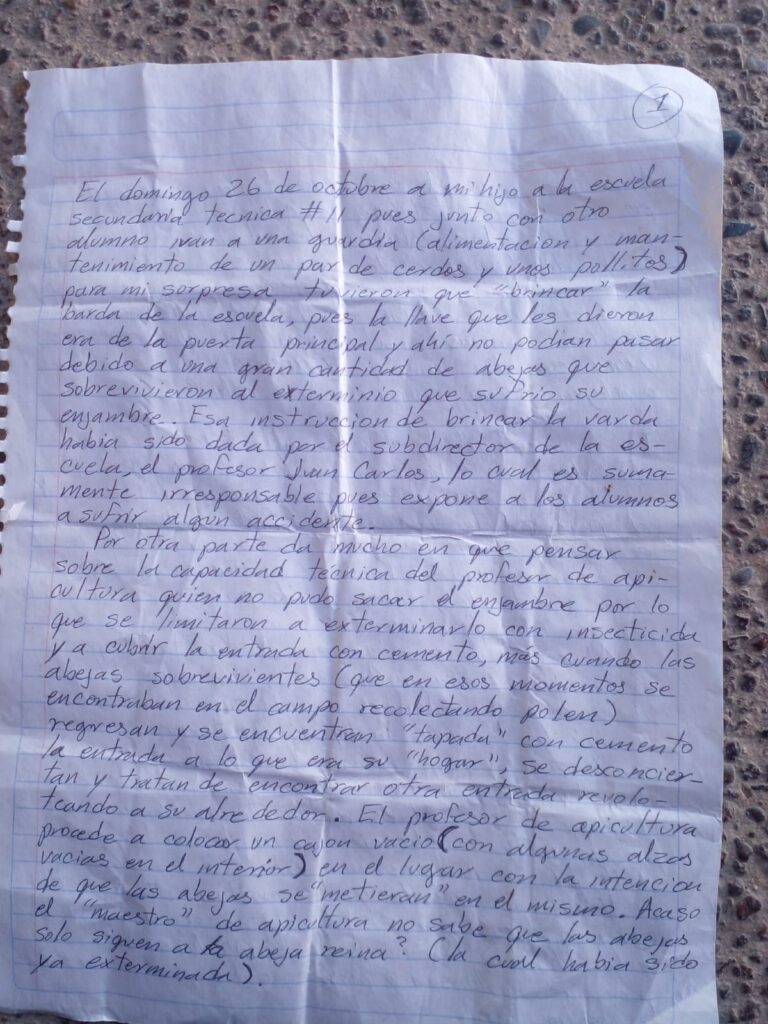 1
El domingo 26 de octubre a mi hijo a la escuela
secundaria tecnica #11 pues junto con otro
alumno ivan a una guardia (alimentacion y man-
tenimiento de un par de cerdos y unos pollitos)
para mi sorpresa tuvieron que "brincar" la
barda de la escuela, pues la llave que les dieron
era de la puerta principal y ahí no podian pasar
debido a una gran cantidad de abejas que
sobrevivieron al exterminio que sufrio su
enjambre. Esa instruccion de brincar la varda
habia sido dada por el subdirector de la es-
cuela, el profesor Juan Carlos, lo cual es suma-
mente irresponsable pues expone a los alumnos
a sufrir algun accidente.
Por otra parte da mucho en que pensar
sobre la capacidad tecnica del profesor de api-
cultura quien no pudo sacar el enjambre por lo
que se limitaron a exterminarlo con insecticida
y a cubrir la entrada con cemento, más cuando las
abejas sobrevivientes (que en esos momentos se
encontraban en el campo recolectando polen)
regresan y se encuentran "tapada" con cemento
la entrada a lo que era su "hogar", se desconcier-
tan y tratan de encontrar otra entrada revolo-
teando a su alrededor. El profesor de apicultura
procede a colocar un cajon vacio (con algunas alzas
vacias en el interior) en el lugar con la intencion
de que las abejas se "metieran" en el mismo. Acaso
el "maestro" de apicultura no sabe que las abejas
solo siguen a la abeja reina? (la cual habia sido
ya exterminada).